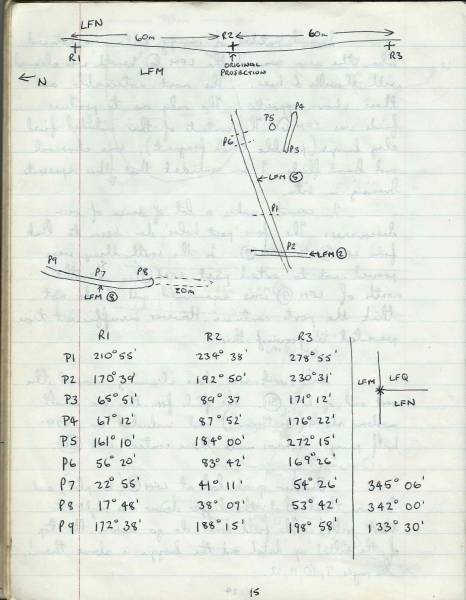 LFN
60m R2 60m
R1 R3
ORIGINAL
PROJECTION
LFM
N
P4
P5
P6
P3
LFM 5
P1
P2
LFM 2
P9
P7 P8
20m
LFM 8
R1 R2 R3
P1 210°55' 239° 38' 278°55'
P2 170°39' 192°50' 230°31'
P3 65°51' 89°37 171°12'
P4 67°12' 87°52' 176°22'
P5 161°10' 184°00' 272°15'
P6 56°20' 83°42' 169°26'
P7 22°55' 41°11' 54°26' 345°06'
P8 17°48' 38°09' 53°42' 342°00'
P9 172°38' 188°15' 198°58' 133°30'
LFM LFQ
LFN
15